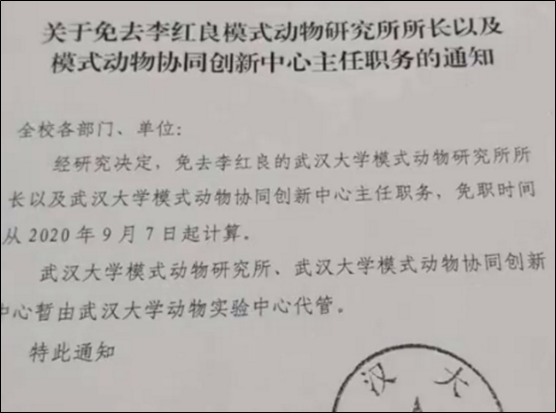 关于免去李红良模式动物研究所所长以及
模式动物协同创新中心主任职务的通知
全校各部门、单位：
经研究决定，免去李红良的武汉大学模式动物研究所所
长以及武汉大学模式动物协同创新中心主任职务，免职时间
从 2020 年 9 月 7 日起计算。
武汉大学模式动物研究所、武汉大学模式动物协同创新
中心暂由武汉大学动物实验中心代管。
特此通知
汉 大